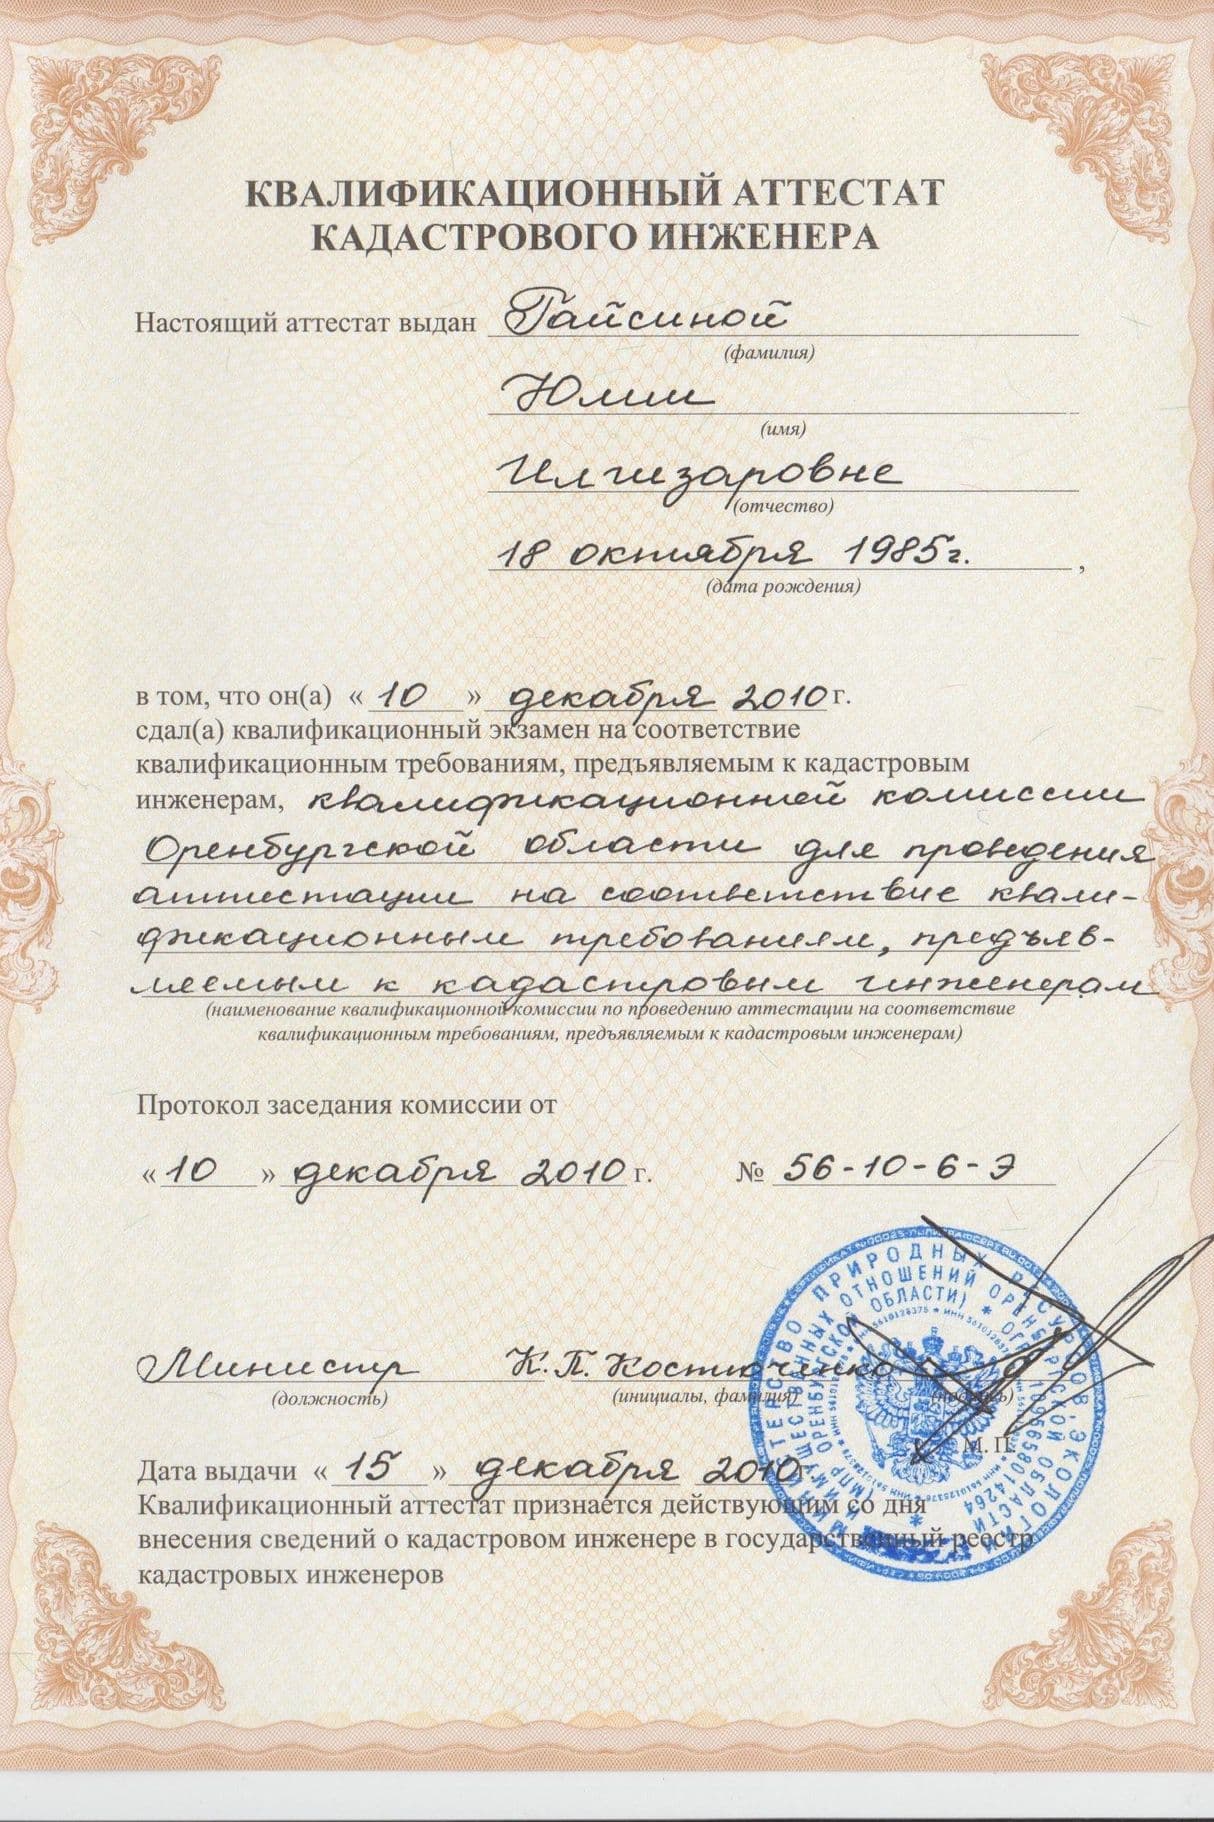 КВАЛИФИКАЦИОННЫЙ АТТЕСТАТ
КАДАСТРОВОГО ИНЖЕНЕРА
Настоящий аттестат выдан Гайсиной
(фамилия)
Юлии
(имя)
Илгизаровне
(отчество)
18 октября 1985г.,
(дата рождения)
в том, что он(а) «10» декабря 2010 г.
сдал(а) квалификационный экзамен на соответствие
квалификационным требованиям, предъявляемым к кадастровым
инженерам, квалификационной комиссии
Оренбургской области для проведения
аттестации на соответствие квали-
фикационным требованиям, предъяв-
ляемым к кадастровым инженерам
(наименование квалификационной комиссии по проведению аттестации на соответствие
квалификационным требованиям, предъявляемым к кадастровым инженерам)
Протокол заседания комиссии от
«10» декабря 2010 г. № 56-10-6-Э
Министр К.П. Костюченко
(должность) (инициалы, фамилия) (подпись)
М.П.
Дата выдачи «15» декабря 2010г.
Квалификационный аттестат признается действующим со дня
внесения сведений о кадастровом инженере в государственный реестр
кадастровых инженеров
МИНИСТЕРСТВО ПРИРОДНЫХ РЕСУРСОВ, ЭКОЛОГИИ
И ИМУЩЕСТВЕННЫХ ОТНОШЕНИЙ ОРЕНБУРГСКОЙ ОБЛАСТИ
ОРЕНБУРГСКОЙ ОБЛАСТИ)